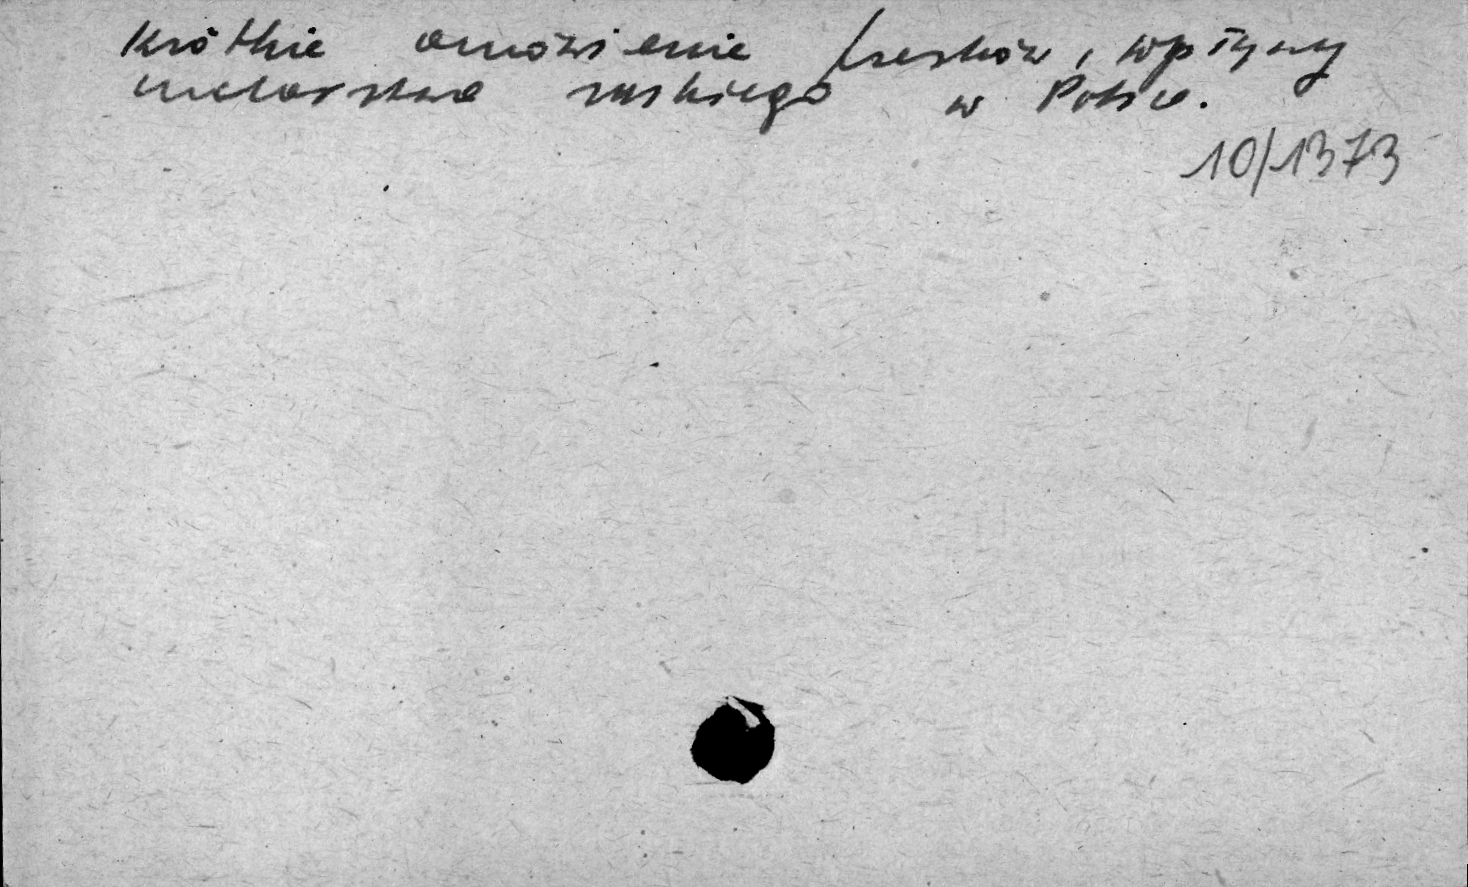 Krótkie omówienie fresków, wpływy
malarstwa ruskiego w Polsce.
10/1373